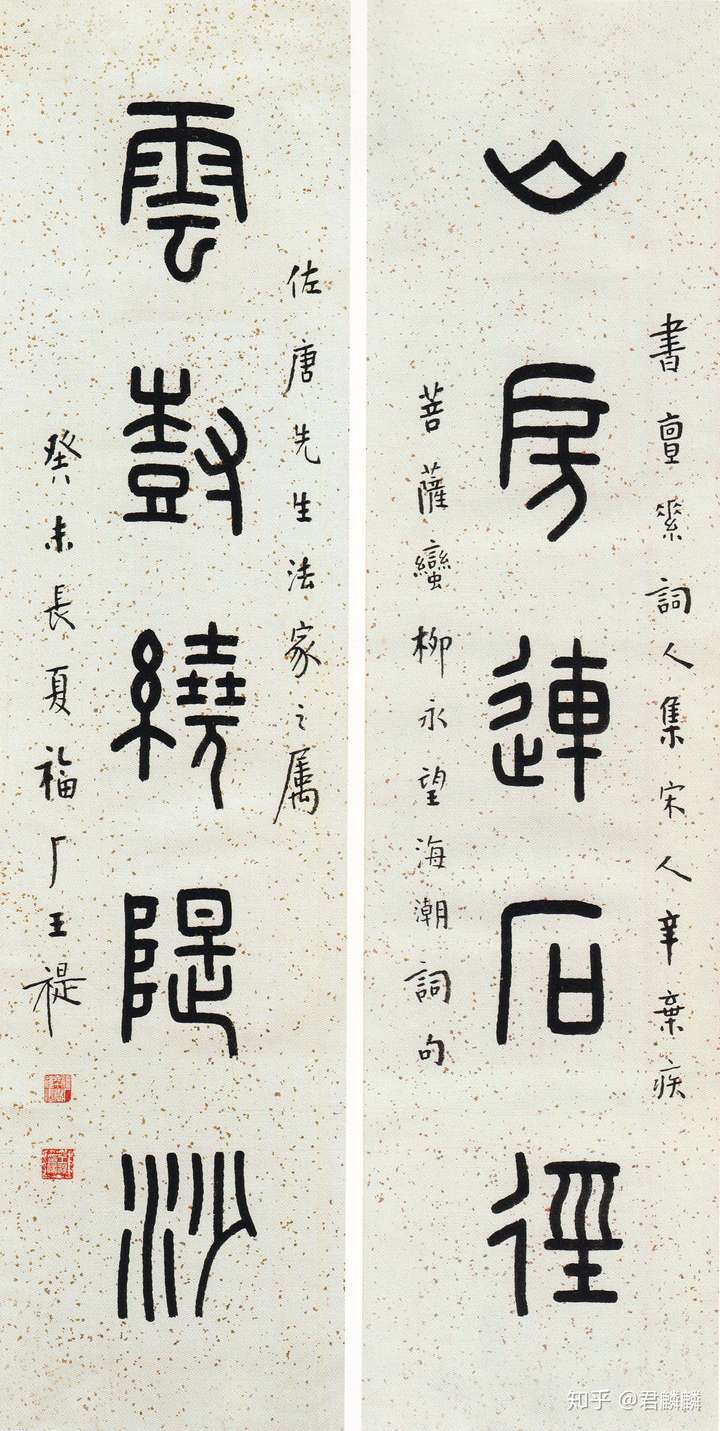 書亶素詞人集宋人辛棄疾
山房連石徑
菩薩蠻柳永望海潮詞句
佐唐先生法家之属
雲樹繞隄沙
癸未長夏福厂王禔
知乎 @君麟麟